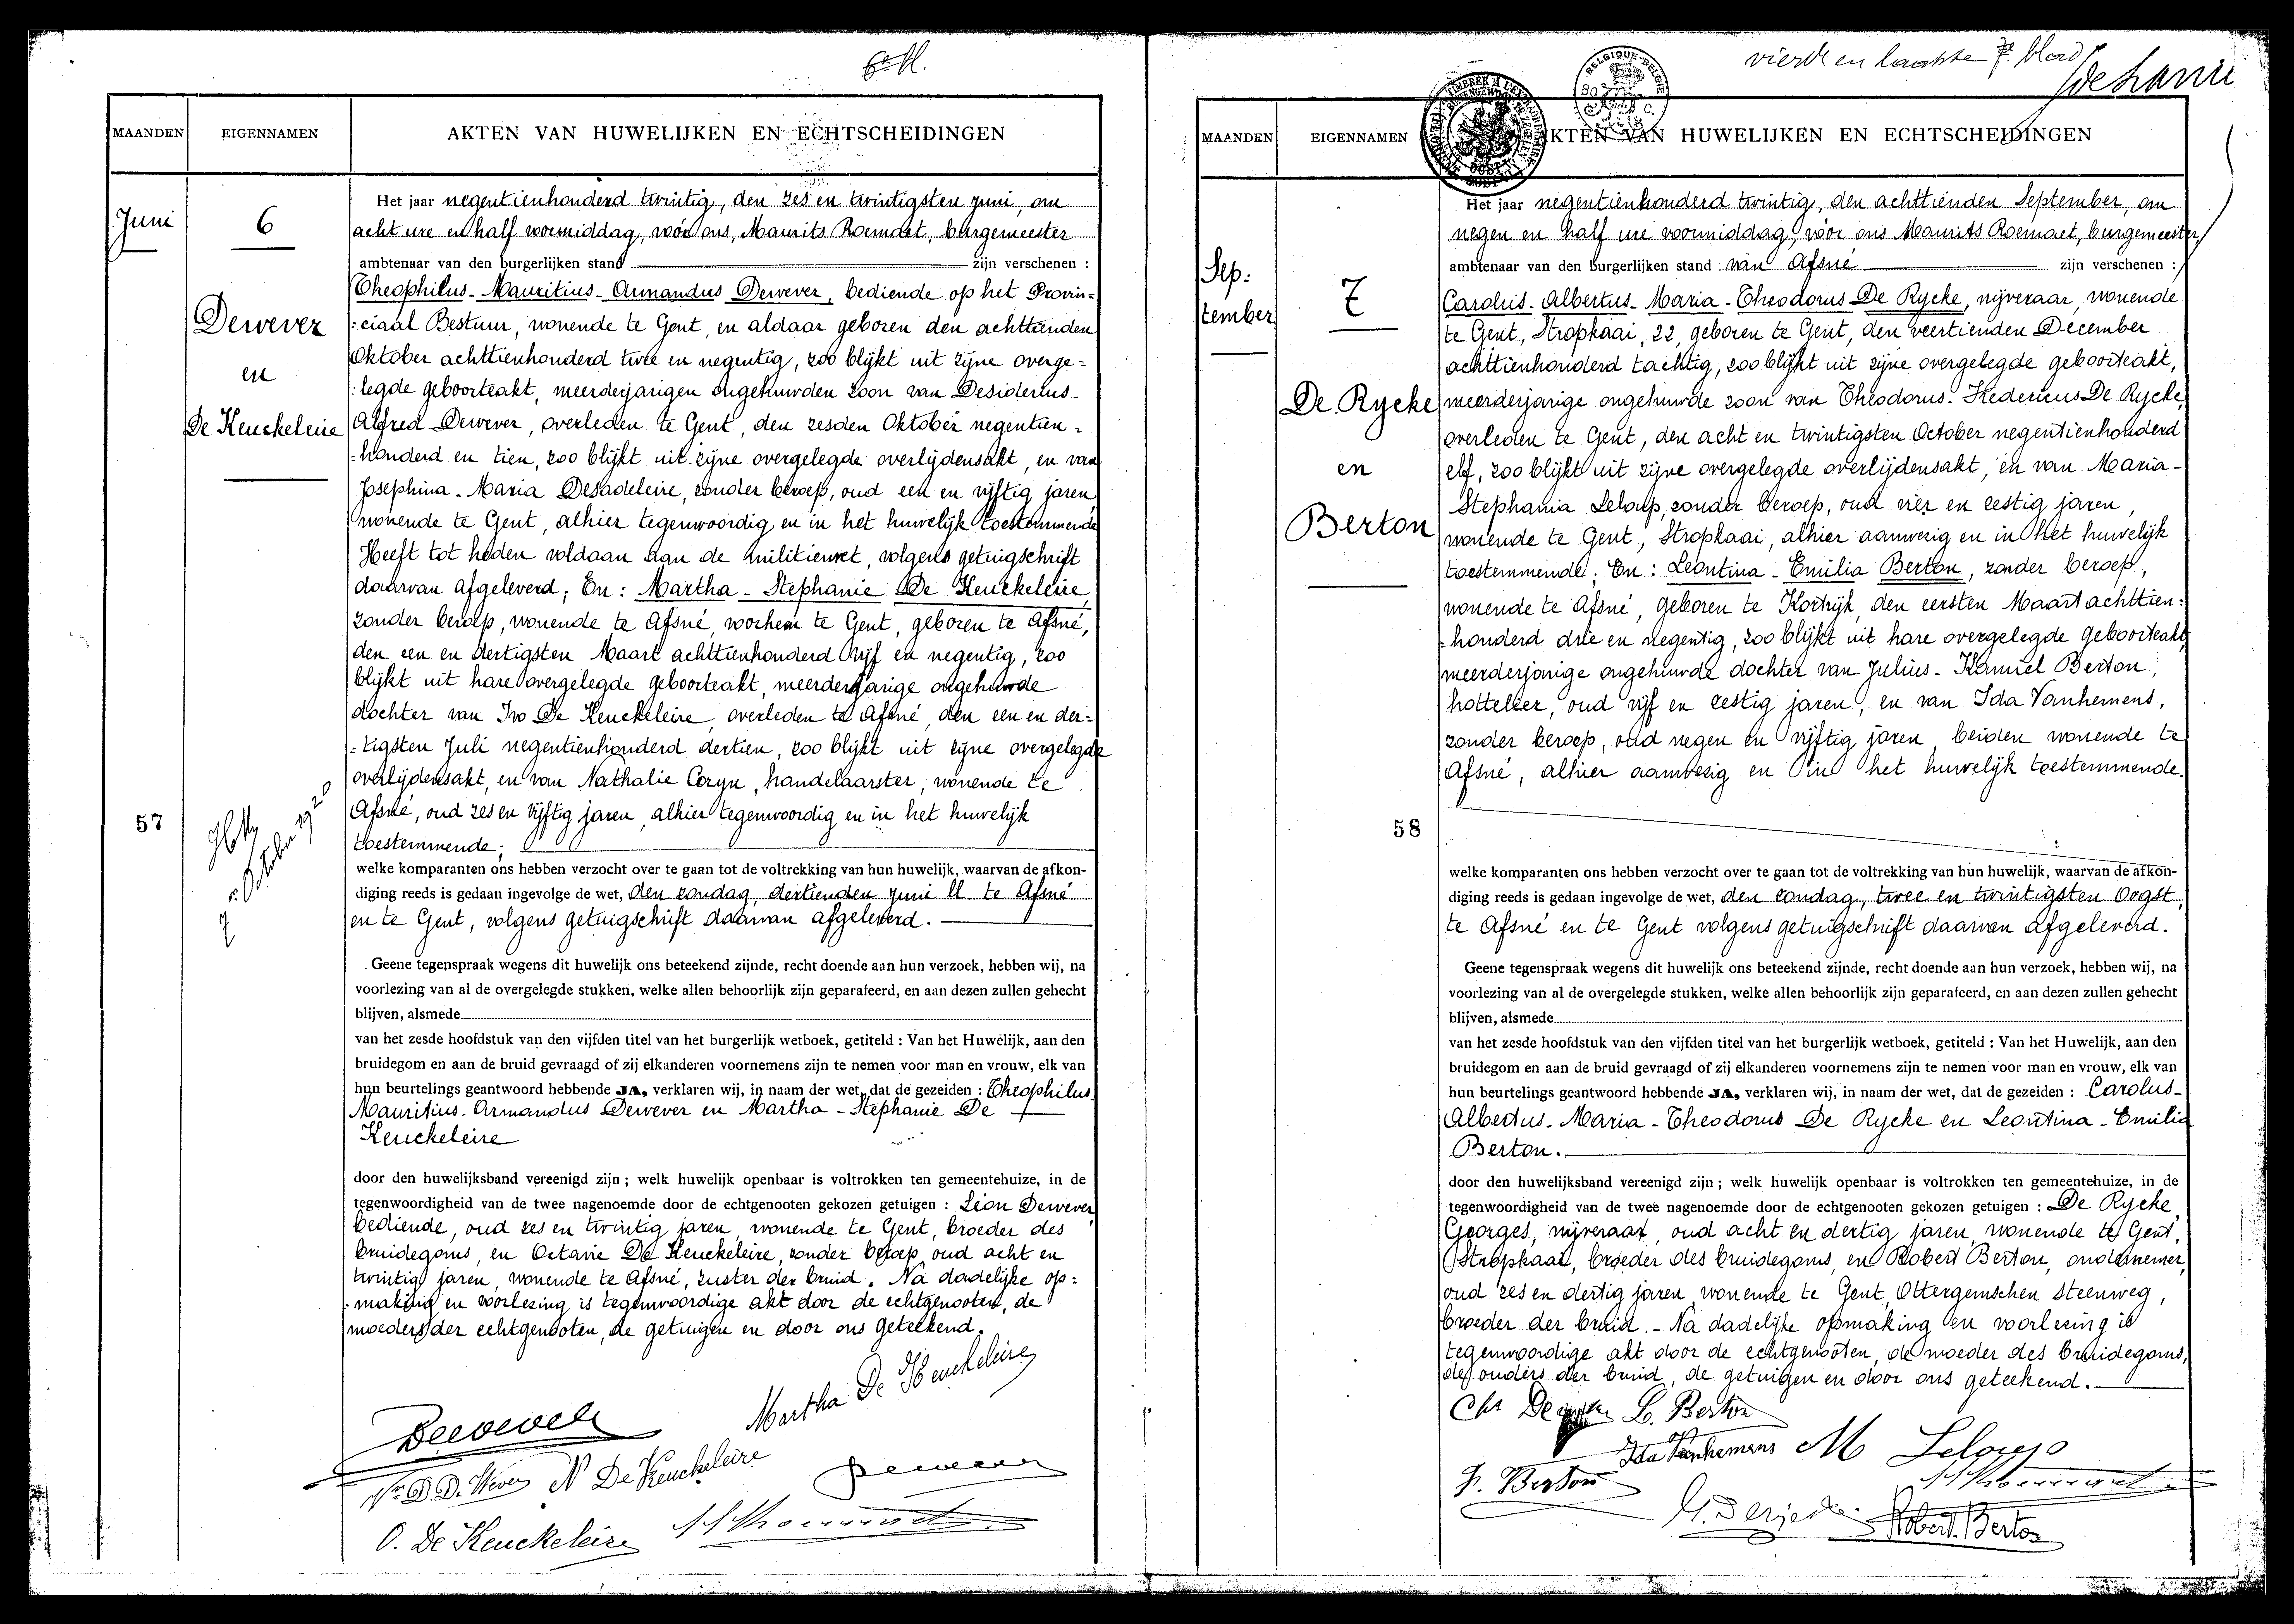 MAANDEN
EIGENNAMEN
AKTEN VAN HUWELIJKEN EN ECHTSCHEIDINGEN
Juni
6
Dewever
en
De Keuckeleire
57
Het jaar negentienhonderd twintig, den zes en twintigsten juni, om
acht ure en half voormiddag, vóór ons, Maurits Roemaet, burgemeester
ambtenaar van den burgerlijken stand zijn verschenen :
Theophilus - Mauritius - Armandus Dewever, bediende op het Provin=
:ciaal Bestuur, wonende te Gent, en aldaar geboren den achttienden
Oktober achttienhonderd twee en negentig, zoo blijkt uit zijne overge=
:legde geboorteakt, meerderjarigen ongehuwden zoon van Desiderius-
Alfred Dewever, overleden te Gent, den zesden Oktober negentien=
:honderd en tien, zoo blijkt uit zijne overgelegde overlijdensakt, en van
Josephina - Maria Desadeleire, zonder beroep, oud een en vijftig jaren
wonende te Gent, alhier tegenwoordig en in het huwelijk toestemmende
Heeft tot heden voldaan aan de militiewet, volgens getuigschrift
daarvan afgeleverd; En : Martha - Stephanie De Keuckeleire,
zonder beroep, wonende te Afsné, voorheen te Gent, geboren te Afsné,
den een en dertigsten Maart achttienhonderd vijf en negentig, zoo
blijkt uit hare overgelegde geboorteakt, meerderjarige ongehuwde
dochter van Ivo De Keuckeleire, overleden te Afsné, den een en der=
=tigsten Juli negentienhonderd dertien, zoo blijkt uit zijne overgelegde
overlijdensakt, en van Nathalie Coryn, handelaarster, wonende te
Afsné, oud zes en vijftig jaren, alhier tegenwoordig en in het huwelijk
toestemmende;
welke komparanten ons hebben verzocht over te gaan tot de voltrekking van hun huwelijk, waarvan de afkon-
diging reeds is gedaan ingevolge de wet, den zondag, dertienden juni ll. te Afsné
en te Gent, volgens getuigschrift daarvan afgeleverd.
Geene tegenspraak wegens dit huwelijk ons beteekend zijnde, recht doende aan hun verzoek, hebben wij, na
voorlezing van al de overgelegde stukken, welke allen behoorlijk zijn geparafeerd, en aan dezen zullen gehecht
blijven, alsmede
van het zesde hoofdstuk van den vijfden titel van het burgerlijk wetboek, getiteld : Van het Huwelijk, aan den
bruidegom en aan de bruid gevraagd of zij elkanderen voornemens zijn te nemen voor man en vrouw, elk van
hun beurtelings geantwoord hebbende JA, verklaren wij, in naam der wet, dat de gezeiden : Theophilus-
Mauritius - Armandus Dewever en Martha - Stephanie De
Keuckeleire
door den huwelijksband vereenigd zijn ; welk huwelijk openbaar is voltrokken ten gemeentehuize, in de
tegenwoordigheid van de twee nagenoemde door de echtgenooten gekozen getuigen : Léon Dewever,
bediende, oud zes en twintig jaren, wonende te Gent, broeder des
bruidegoms, en Octavie De Keuckeleire, zonder beroep, oud acht en
twintig jaren, wonende te Afsné, zuster der bruid. Na dadelijke op=
:making en voorlezing is tegenwoordige akt door de echtgenooten, de
moeders der echtgenooten, de getuigen en door ons geteekend.
Martha De Keuckeleire
Dewever
N De Keuckeleire
O. De Keuckeleire
vierde en laatste blad
MAANDEN
EIGENNAMEN
AKTEN VAN HUWELIJKEN EN ECHTSCHEIDINGEN
Sep:
tember
7
De Rycke
en
Berton
58
Het jaar negentienhonderd twintig, den achttienden September, om
negen en half ure voormiddag, vóór ons Maurits Roemaet, burgemeester,
ambtenaar van den burgerlijken stand van Afsné zijn verschenen :
Carolus - Albertus - Maria - Theodorus De Rycke, nijveraar, wonende
te Gent, Stropkaai, 22, geboren te Gent, den veertienden December
achttienhonderd tachtig, zoo blijkt uit zijne overgelegde geboorteakt,
meerderjarige ongehuwde zoon van Theodorus - Fredericus De Rycke,
overleden te Gent, den acht en twintigsten October negentienhonderd
elf, zoo blijkt uit zijne overgelegde overlijdensakt, en van Maria-
Stephania Leloup, zonder beroep, oud vier en zestig jaren,
wonende te Gent, Stropkaai, alhier aanwezig en in het huwelijk
toestemmende; En : Leontina - Emilia Berton, zonder beroep,
wonende te Afsné, geboren te Kortrijk, den eersten Maart achttien:
:honderd drie en negentig, zoo blijkt uit hare overgelegde geboorteakt,
meerderjarige ongehuwde dochter van Julius - Kamiel Berton,
hottelier, oud vijf en zestig jaren, en van Ida Vanhemens,
zonder beroep, oud negen en vijftig jaren, beiden wonende te
Afsné, alhier aanwezig en in het huwelijk toestemmende.
welke komparanten ons hebben verzocht over te gaan tot de voltrekking van hun huwelijk, waarvan de afkon-
diging reeds is gedaan ingevolge de wet, den zondag, twee en twintigsten Oogst,
te Afsné en te Gent volgens getuigschrift daarvan afgeleverd.
Geene tegenspraak wegens dit huwelijk ons beteekend zijnde, recht doende aan hun verzoek, hebben wij, na
voorlezing van al de overgelegde stukken, welke allen behoorlijk zijn geparafeerd, en aan dezen zullen gehecht
blijven, alsmede
van het zesde hoofdstuk van den vijfden titel van het burgerlijk wetboek, getiteld : Van het Huwelijk, aan den
bruidegom en aan de bruid gevraagd of zij elkanderen voornemens zijn te nemen voor man en vrouw, elk van
hun beurtelings geantwoord hebbende JA, verklaren wij, in naam der wet, dat de gezeiden : Carolus-
Albertus - Maria - Theodorus De Rycke en Leontina - Emilia
Berton.
door den huwelijksband vereenigd zijn ; welk huwelijk openbaar is voltrokken ten gemeentehuize, in de
tegenwoordigheid van de twee nagenoemde door de echtgenooten gekozen getuigen : De Rycke
Georges, nijveraar, oud acht en dertig jaren, wonende te Gent,
Stropkaai, broeder des bruidegoms, en Robert Berton, ondernemer,
oud zes en dertig jaren, wonende te Gent, Ottergemschen steenweg,
broeder der bruid. - Na dadelijke opmaking en voorlezing is
tegenwoordige akt door de echtgenooten, de moeder des bruidegoms,
de ouders der bruid, de getuigen en door ons geteekend.
L. Berton
Ida Vanhemens
M Leloup
Berton
Robert Berton